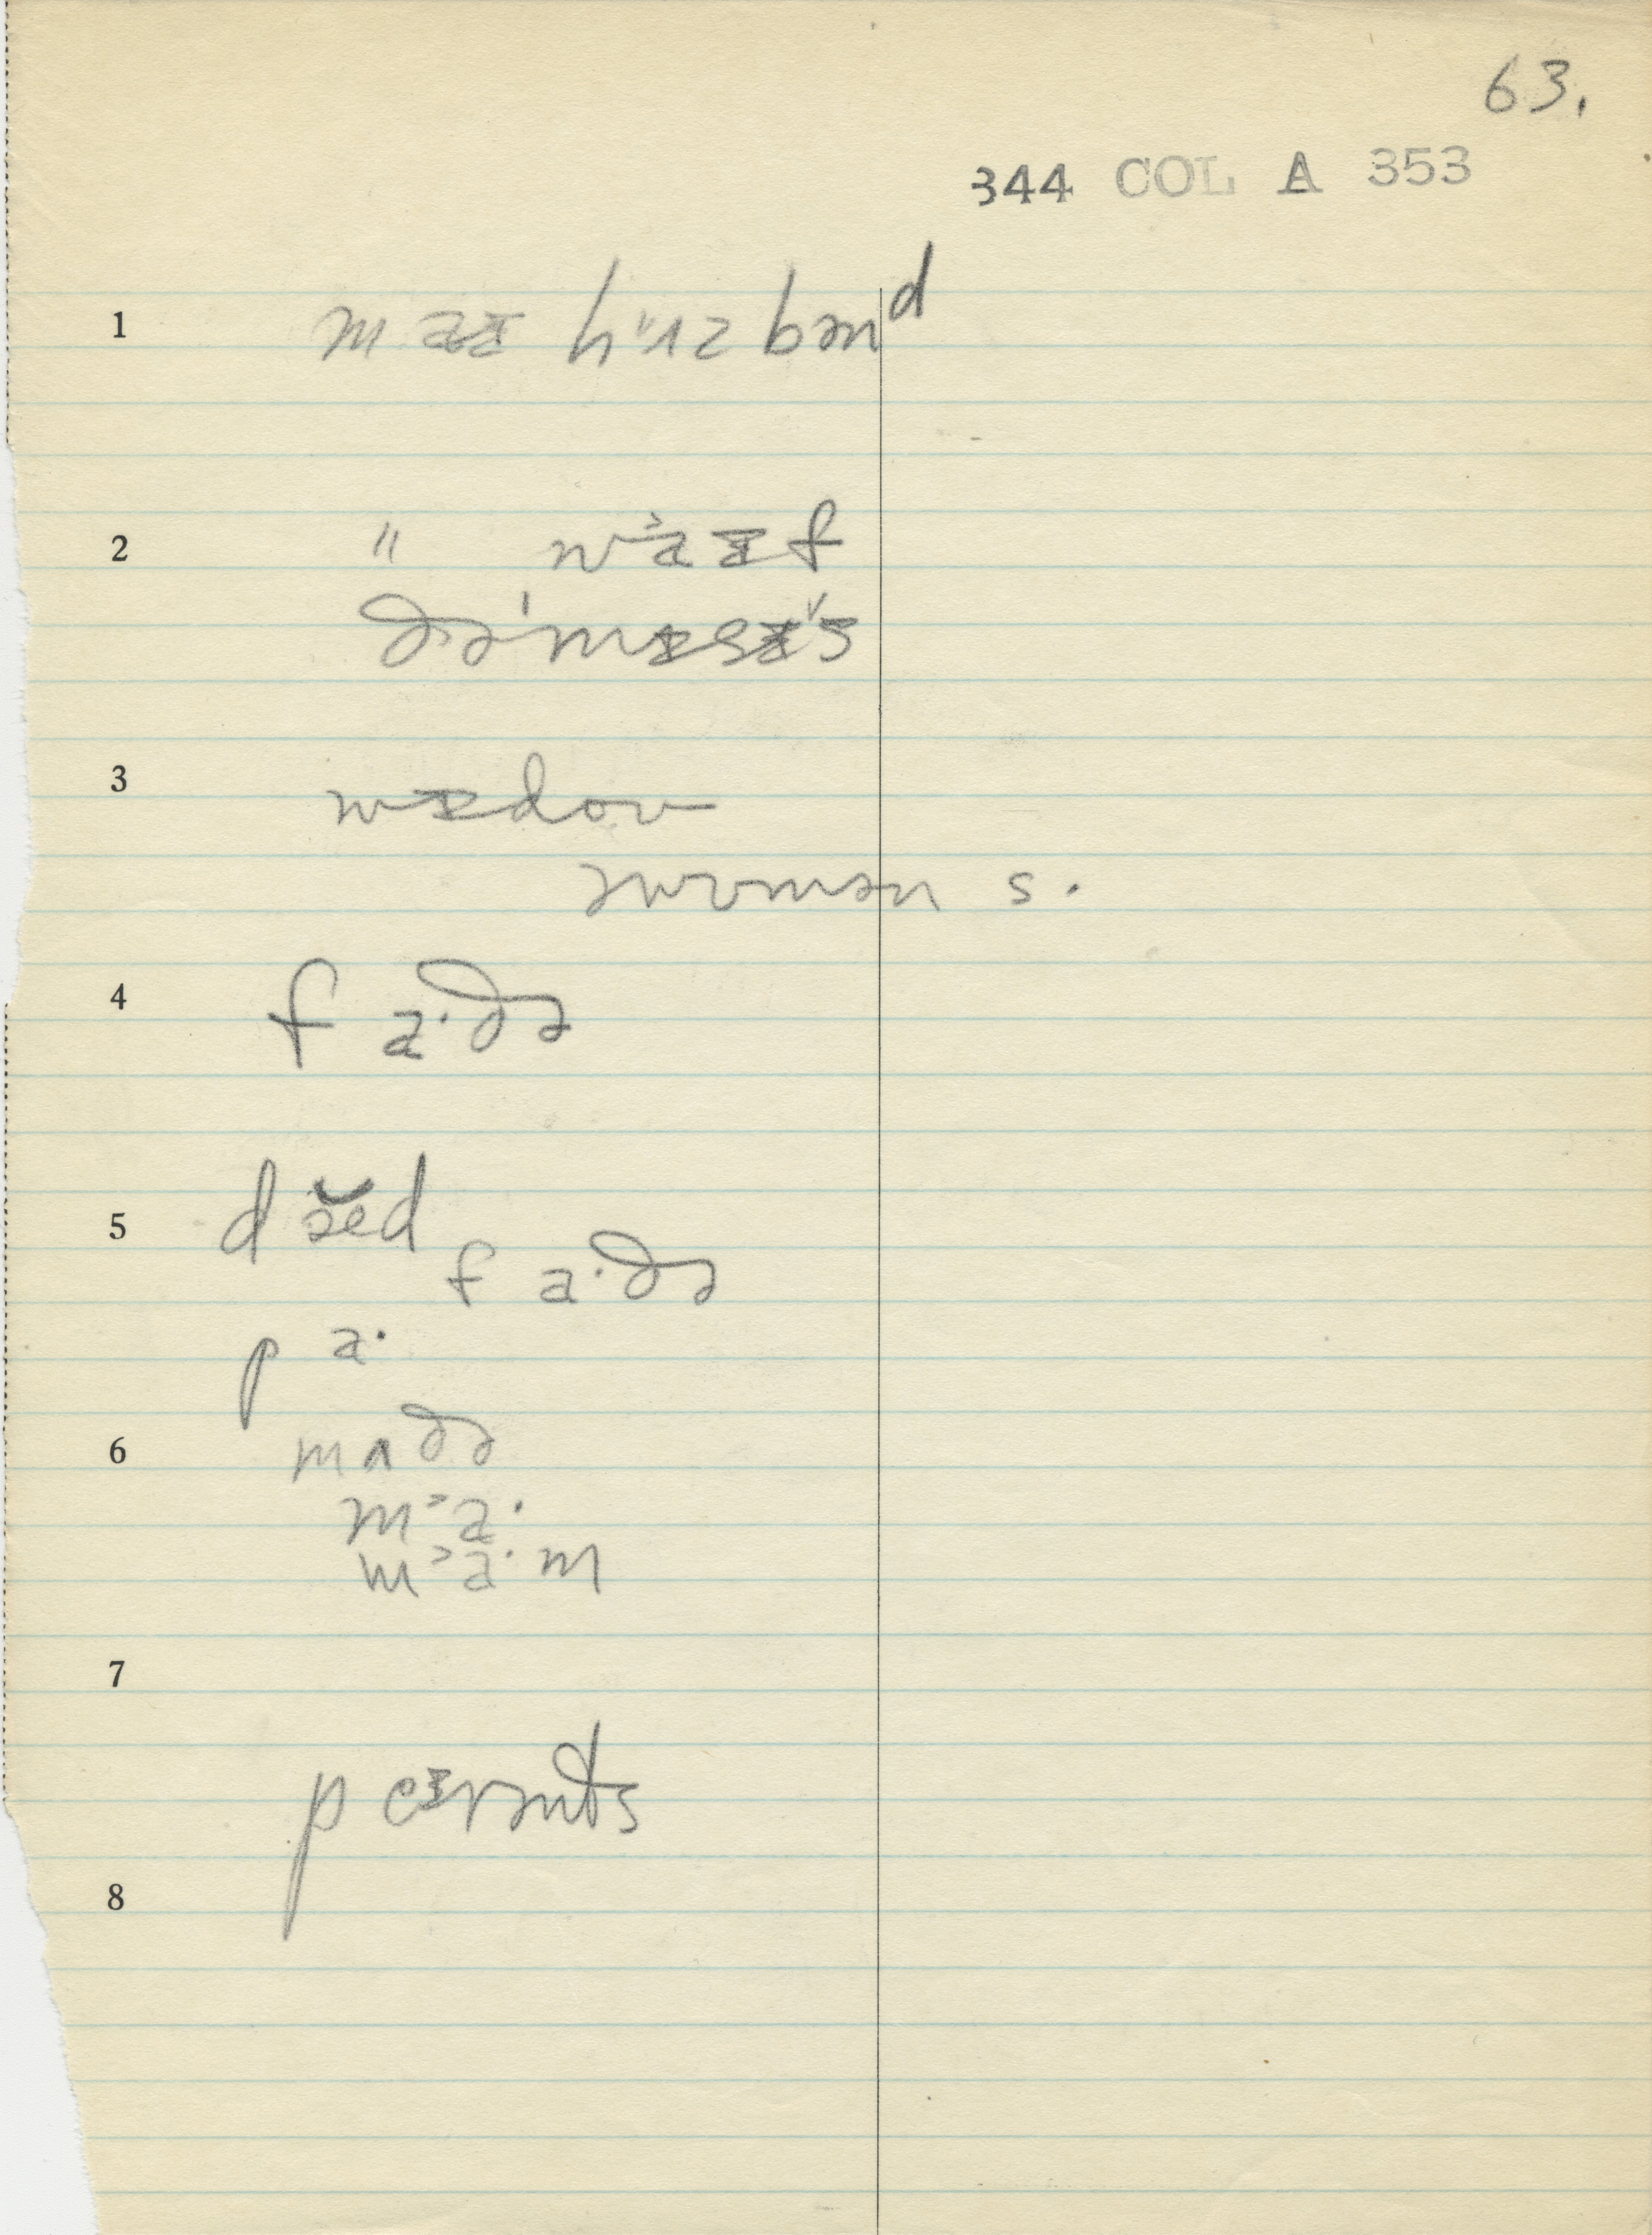 63.
344 COL A 353
1 maɪ hʌzbənᵈ
2 " waɪf
ðə ˈmɪsɪs
3 wɪdoʊ
ə wʊmən s.
4 f a·ðə
5 d ĕd
f a·ðə
p a·
6 mʌðə
m˃a·
m˃a·m
7
pɛɪrənts
8